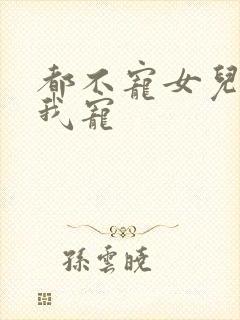 都不寵女兒
我寵
孫雲曉